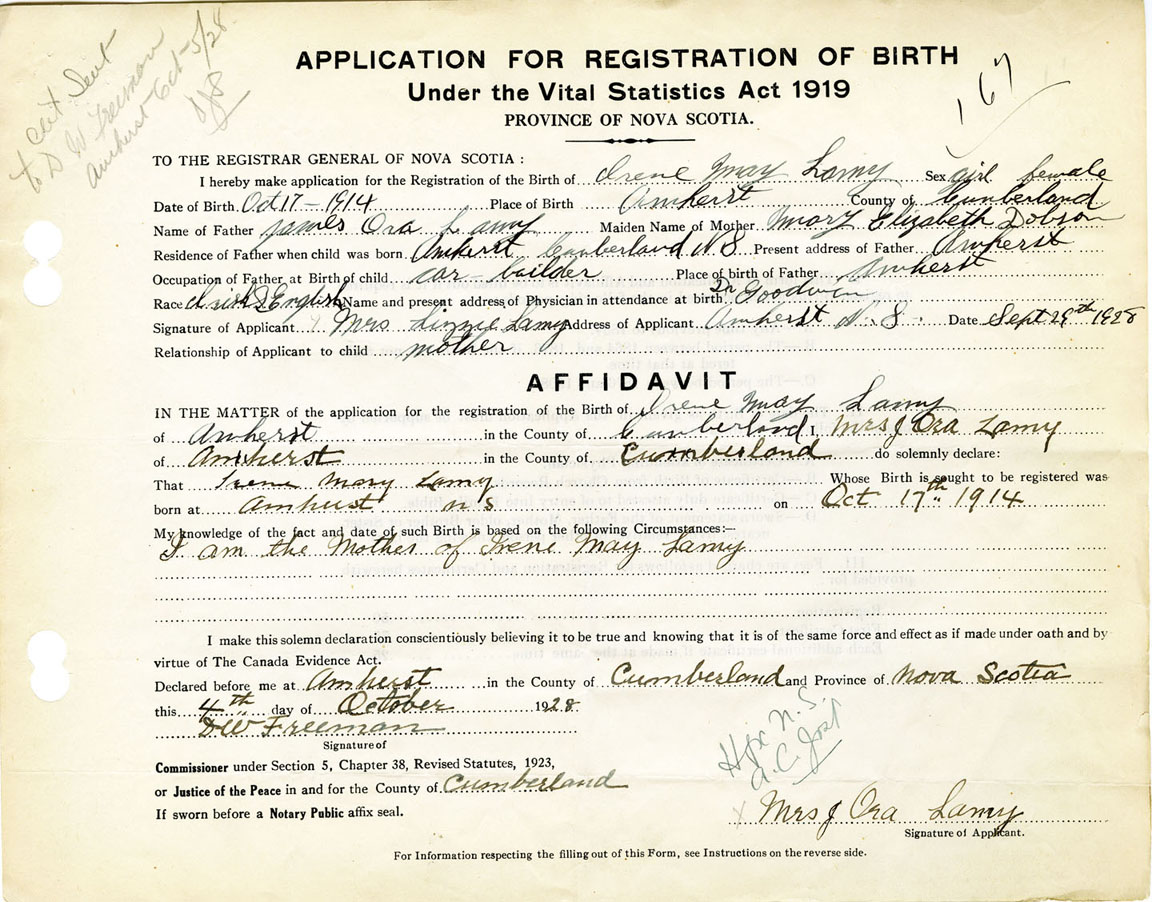 Cert Sent
to D W Freeman
Amherst Oct-5/28
APPLICATION FOR REGISTRATION OF BIRTH
Under the Vital Statistics Act 1919
PROVINCE OF NOVA SCOTIA.
167
TO THE REGISTRAR GENERAL OF NOVA SCOTIA :
I hereby make application for the Registration of the Birth of Irene May Lamy Sex girl female
Date of Birth Oct 17 - 1914 Place of Birth Amherst County of Cumberland
Name of Father James Ora Lamy Maiden Name of Mother Mary Elizabeth Dobson
Residence of Father when child was born Amherst Cumberland N S Present address of Father Amherst
Occupation of Father at Birth of child car-builder Place of birth of Father Amherst
Race Irish & English Name and present address of Physician in attendance at birth Dr Goodwin
Signature of Applicant Mrs Lizzie Lamy Address of Applicant Amherst N.S. Date Sept 29th 1928
Relationship of Applicant to child mother
AFFIDAVIT
IN THE MATTER of the application for the registration of the Birth of Irene May Lamy
of Amherst in the County of Cumberland I, Mrs J Ora Lamy
of Amherst in the County of Cumberland do solemnly declare:
That Irene Mary Lamy Whose Birth is sought to be registered was
born at Amherst N S on Oct 17th 1914
My knowledge of the fact and date of such Birth is based on the following Circumstances:—
I am the Mother of Irene May Lamy
I make this solemn declaration conscientiously believing it to be true and knowing that it is of the same force and effect as if made under oath and by
virtue of The Canada Evidence Act.
Declared before me at Amherst in the County of Cumberland and Province of Nova Scotia
this 4th day of October 1928
DW Freeman
Signature of
Commissioner under Section 5, Chapter 38, Revised Statutes, 1923,
or Justice of the Peace in and for the County of Cumberland
If sworn before a Notary Public affix seal.
Hfx N.S.
A.C. Jost
x Mrs J Ora Lamy
Signature of Applicant.
For Information respecting the filling out of this Form, see Instructions on the reverse side.